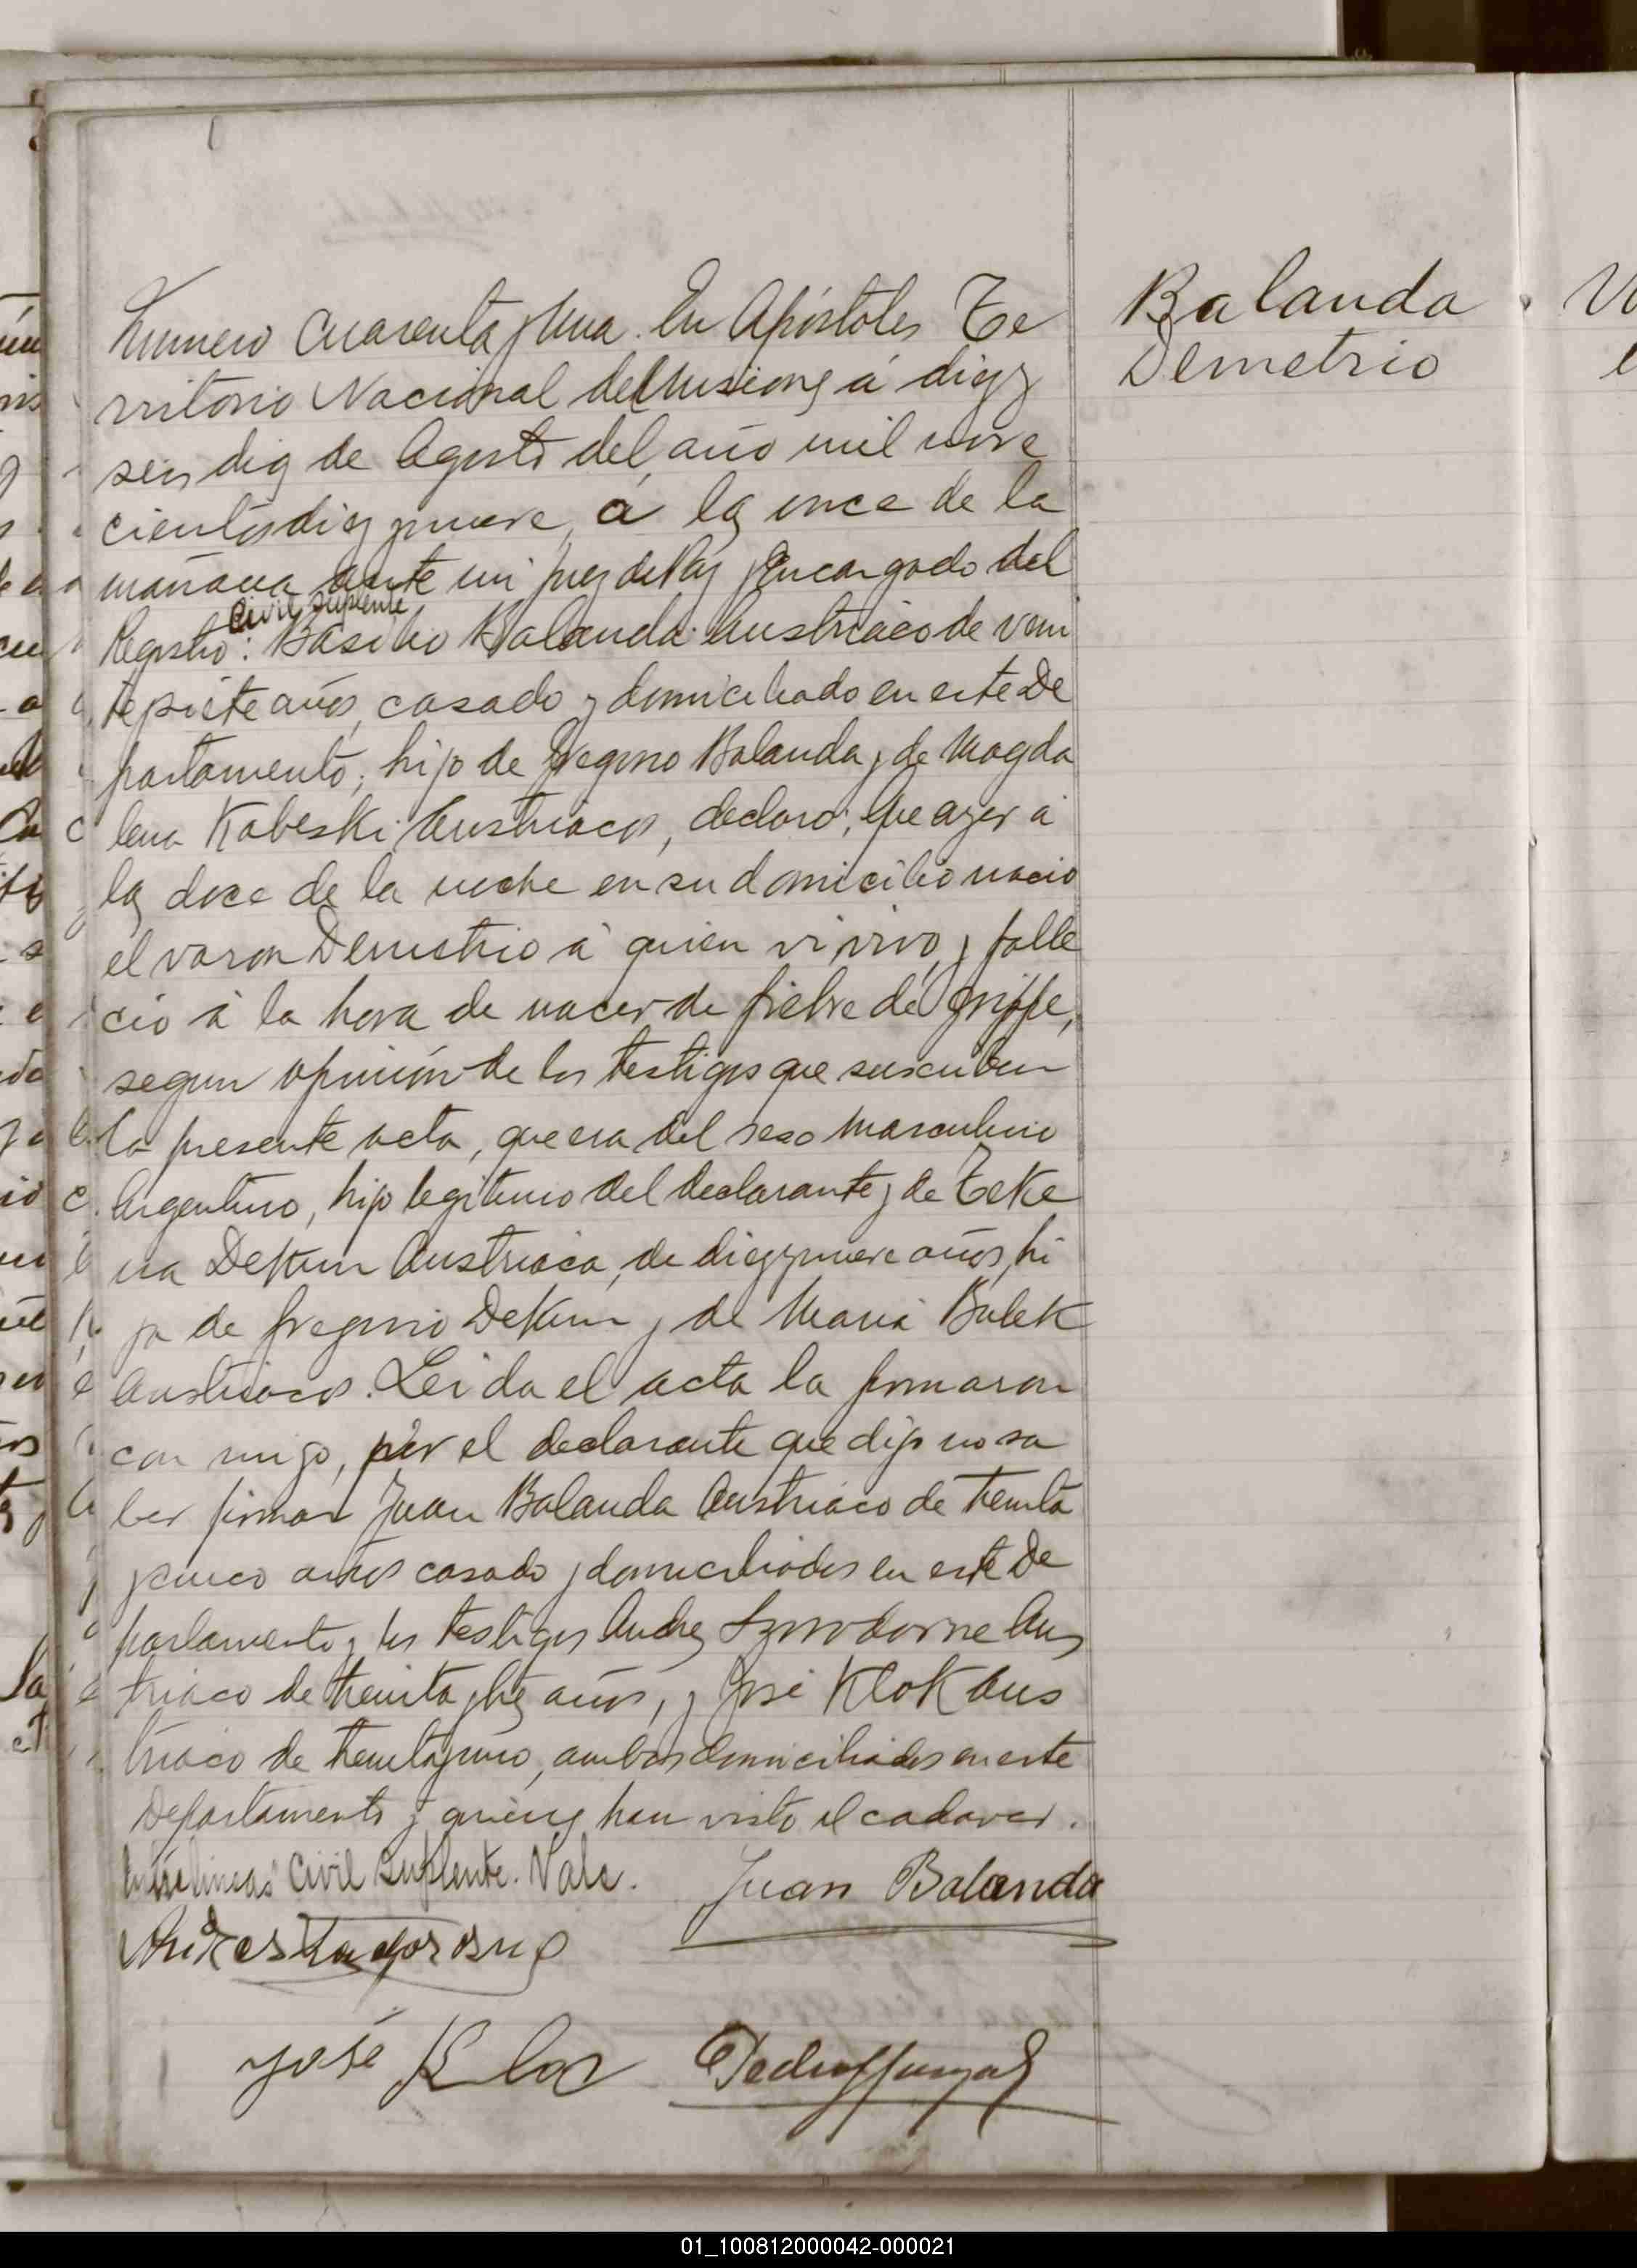 Numero Cuarenta y Una. En Apóstoles Te
rritorio Nacional de Misiones á diez y
seis dias de Agosto del año mil nove
cientos diez y nueve, á las once de la
mañana ante mi Juez de Paz y Encargado del
Civil Suplente
Registro: Basilio Balanda Austriaco de vein
tisiete años, casado y domiciliado en este De
partamento, hijo de Gregorio Balanda y de Magda
lena Kabeski Austriacos, declaró; Que ayer á
las doce de la noche en su domicilio nació
el varon Demetrio á quien vi vivo, y falle
ció á la hora de nacer de fiebre de grippe,
segun opinión de los testigos que suscriben
la presente acta, que era del sexo masculino
Argentino, hijo legitimo del declarante y de Teke
na Dekun Austriaca, de diez y nueve años, hi
ja de Gregorio Dekun y de Maria Bulek
Austriacos. Leida el acta la firmaron
con migo, por el declarante que dijo no sa
ber firmar Juan Balanda Austriaco de treinta
y cinco años casado y domiciliados en este De
partamento y los testigos Andres Aus
triaco de treinta y tres años, y José Klok Aus
triaco de treinta y uno, ambos domiciliados en este
Departamento y quienes han visto el cadaver.
Entrelineas "Civil Suplente. Vale.
Juan Balanda
José
Balanda
Demetrio
01_100812000042-000021